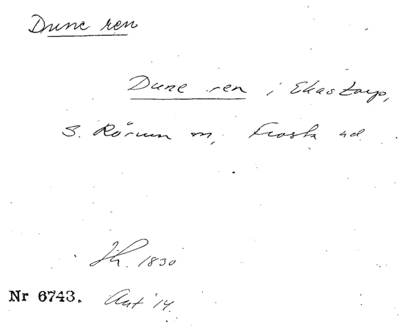 Dune ren
Dune ren i Ekastorp,
S. Rörum sn, Frosta hd
Jh. 1830
Nr 6743. Ant 14.